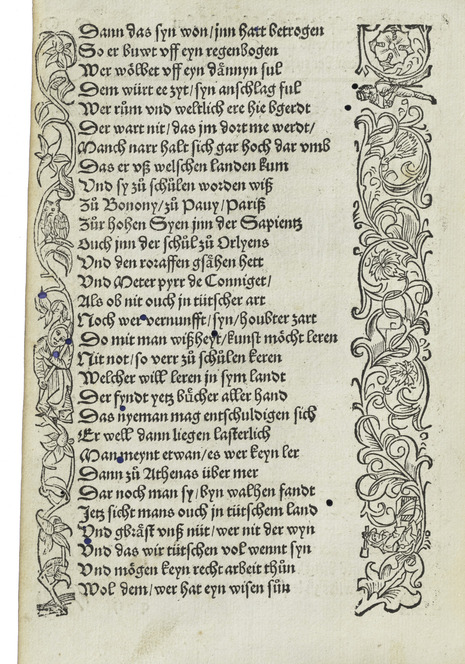 Dann das syn won/jnn hatt betrogen
So er buwt vff eyn regenbogen
Wer wölbet vff eyn dännyn sul
Dem würt ee zyt/syn anschlag ful
Wer rům vnd weltlich ere hie bgerdt
Der wart nit/das jm dort me werdt/
Manch narr halt sich gar hoch dar vmb
Das er vß welschen landen kum
Vnd sy zů schůlen worden wiß
Zů Bonony/zů Pauy/Pariß
Zůr hohen Syen jnn der Sapientz
Ouch jnn der schůl zů Orlyens
Vnd den roraffen gsähen hett
Vnd Meter pyrr de Conniget/
Als ob nit ouch jn tütscher art
Noch wer vernunfft/syn/houbter zart
Do mit man wißheyt/kunst möcht leren
Nit not/so verr zů schůlen keren
Welcher will leren jn sym landt
Der fyndt yetz bücher aller hand
Das nyeman mag entschuldigen sich
Er well dann liegen lasterlich
Man meynt etwan/es wer keyn ler
Dann zů Athenas über mer
Dar noch man sy/byn walhen fandt
Jetz sicht mans ouch jn tütschem land
Vnd gbräst vnß nüt/wer nit der wyn
Vnd das wir tütschen vol wennt syn
Vnd mögen keyn recht arbeit thůn
Wol dem/wer hat eyn wisen sůn